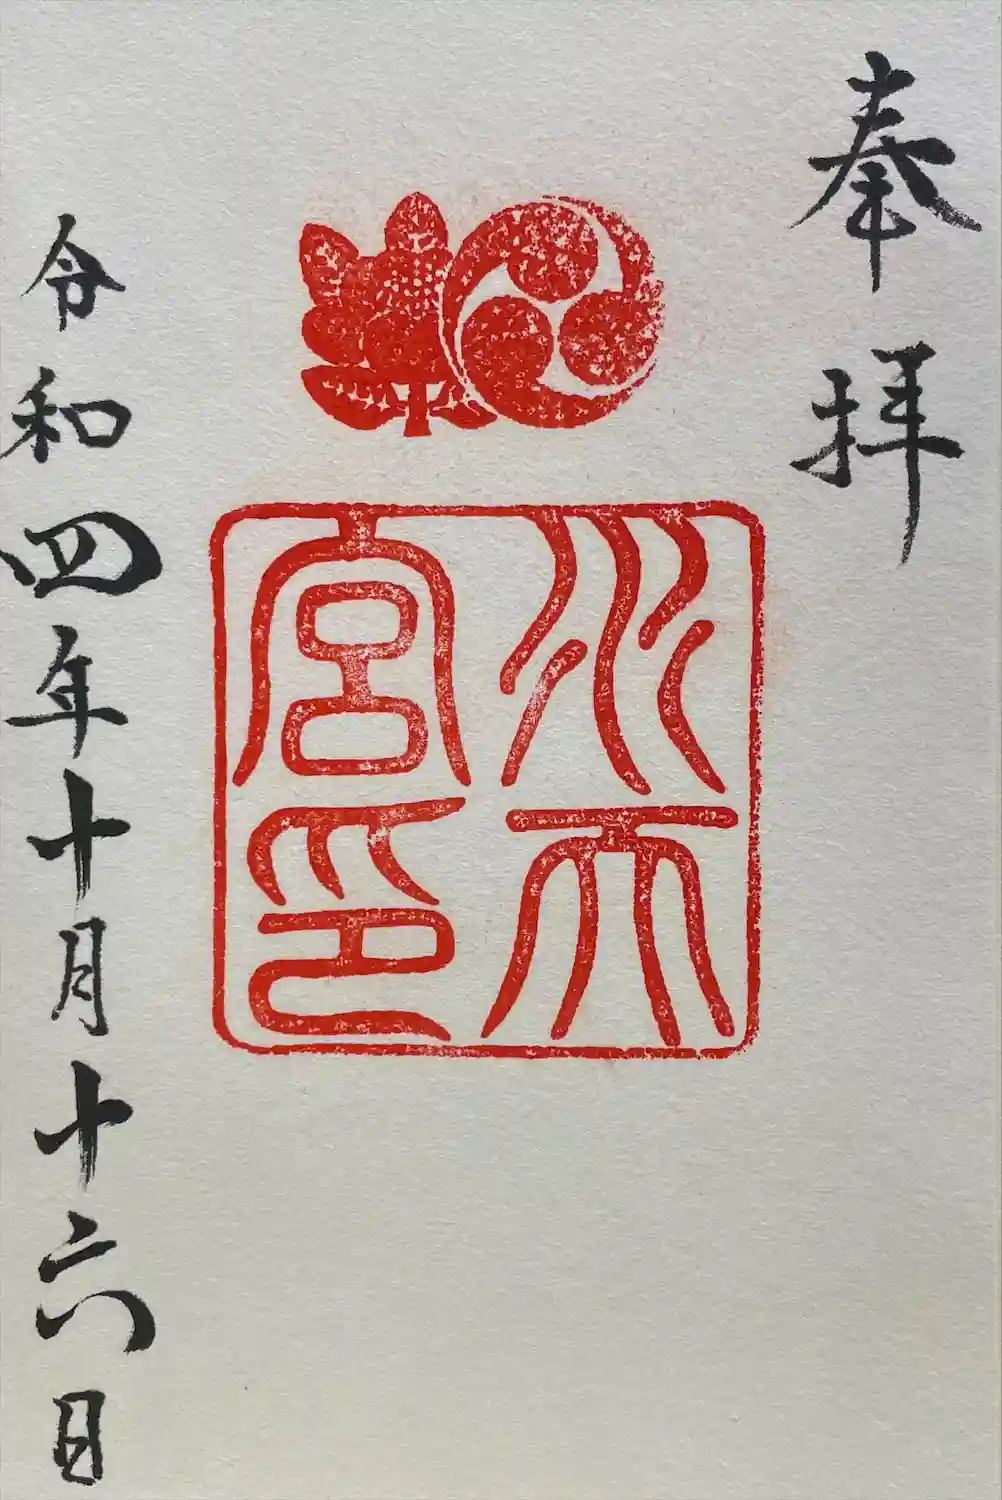 奉拝
水天
宮印
令和四年十月十六日